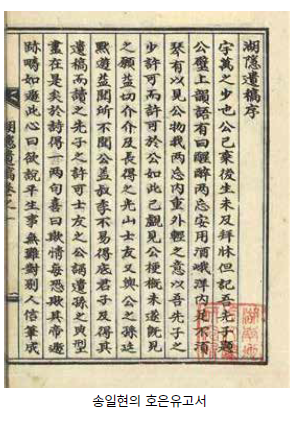 湖隱遺稿序
字萬之少也公已棄後生未及拜牀但記吾先子題
公壁上韻語有曰醒醉兩忘安用酒峨洋內足不須
琴有以見公物我兩忘內重外輕之意以吾先子之
少許可而許可於公如此已覵見公梗槪未遂旣見
之願益切介介及長得之光山士友又與公之孫廷
默遊益聞所不聞公蓋叔季不易得底君子及得其
遺稿而讀之先子之許可士友之公誦遺孫之典型
盡在是矣於詩得一兩句喜曰欺情每恐欺其帝遯
跡疇如遯此心曰欲說平生事無難對別人信筆成
송일현의 호은유고서